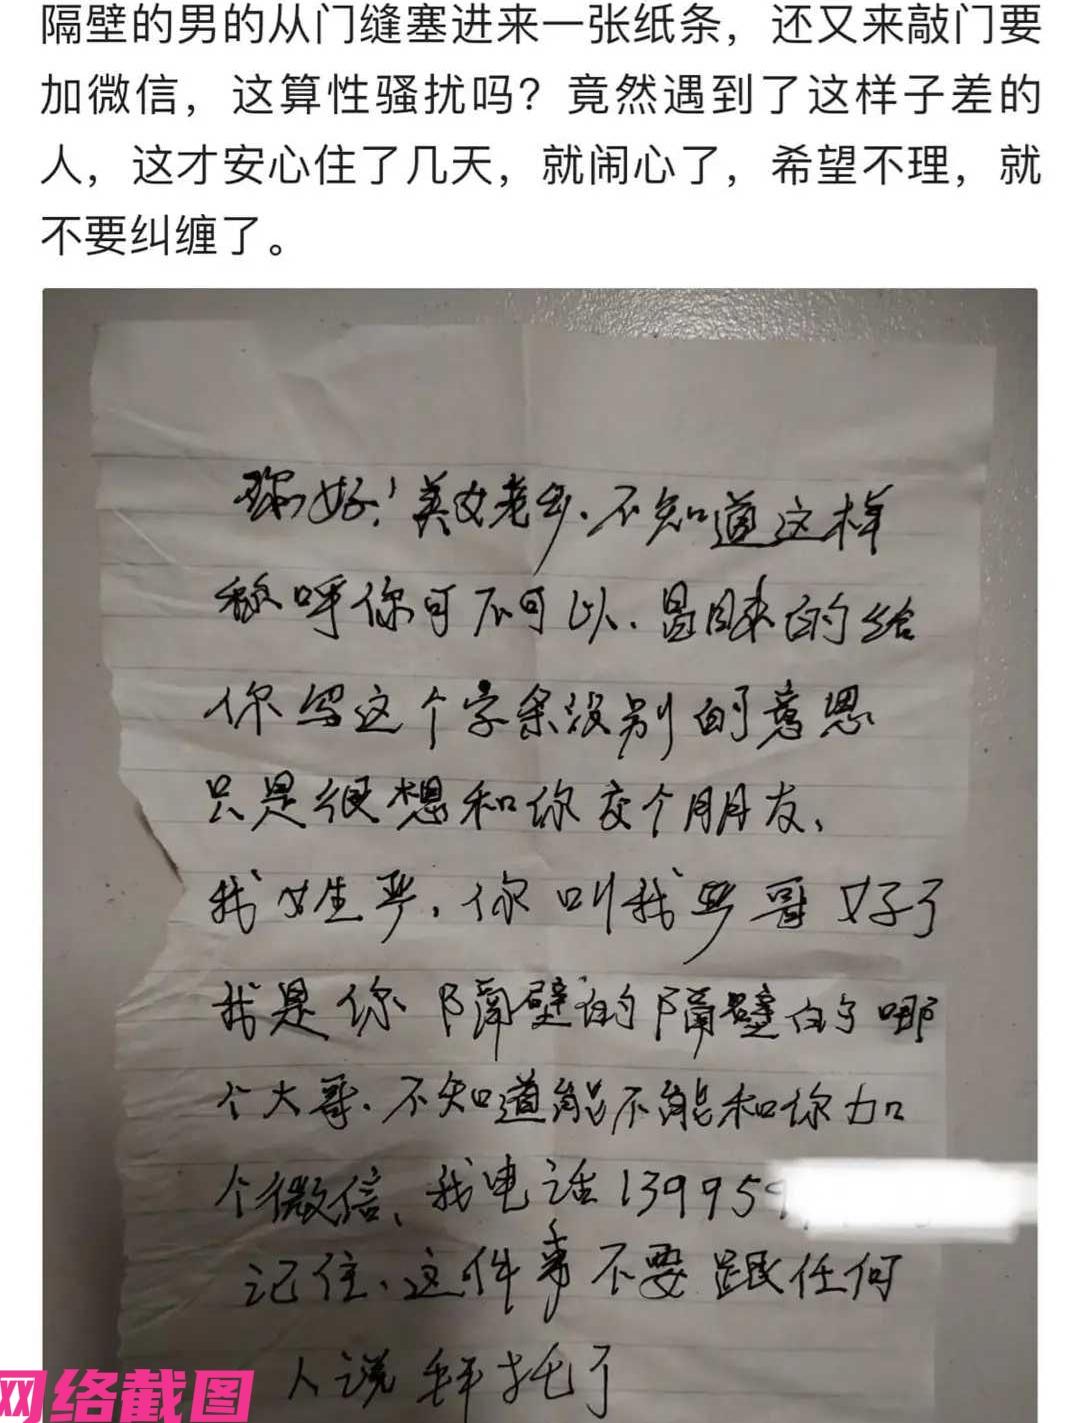 隔壁的男的从门缝塞进来一张纸条，还又来敲门要
加微信，这算性骚扰吗？竟然遇到了这样子差的
人，这才安心住了几天，就闹心了，希望不理，就
不要纠缠了。
你好！美女老乡、不知道这样
称呼你可不可以、冒昧的给
你写这个字条没别的意思
只是很想和你交个朋友、
我姓严，你叫我严哥好了
我是你隔壁的隔壁的哪
个大哥、不知道能不能和你加
个微信、我电话139959
记住、这件事不要跟任何
人说拜托了
网络截图